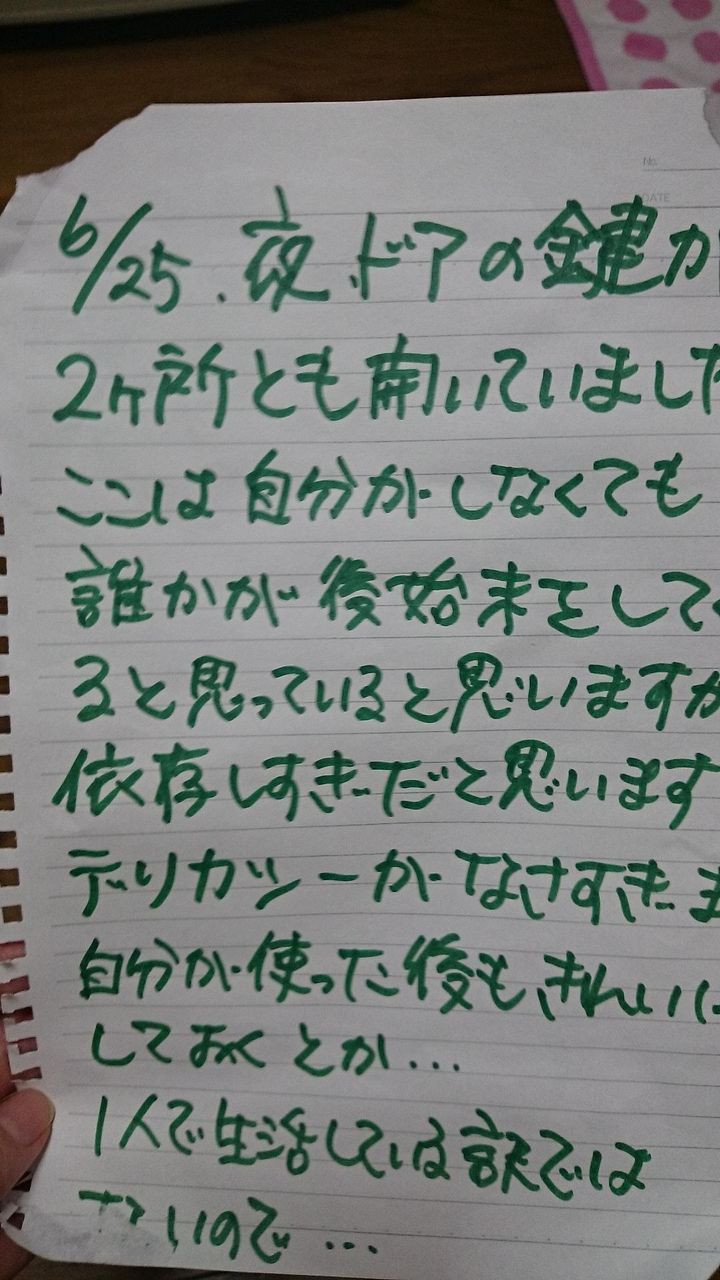 No.
DATE
6/25.夜、ドアの鍵が
2ヶ所とも開いていました
ここは自分がしなくても
誰かが後始末をして
ると思っていると思いますが
依存しすぎだと思います
デリカシーがなさすぎま
自分が使った後もきれいに
しておくとか…
1人で生活している訳では
ないので…